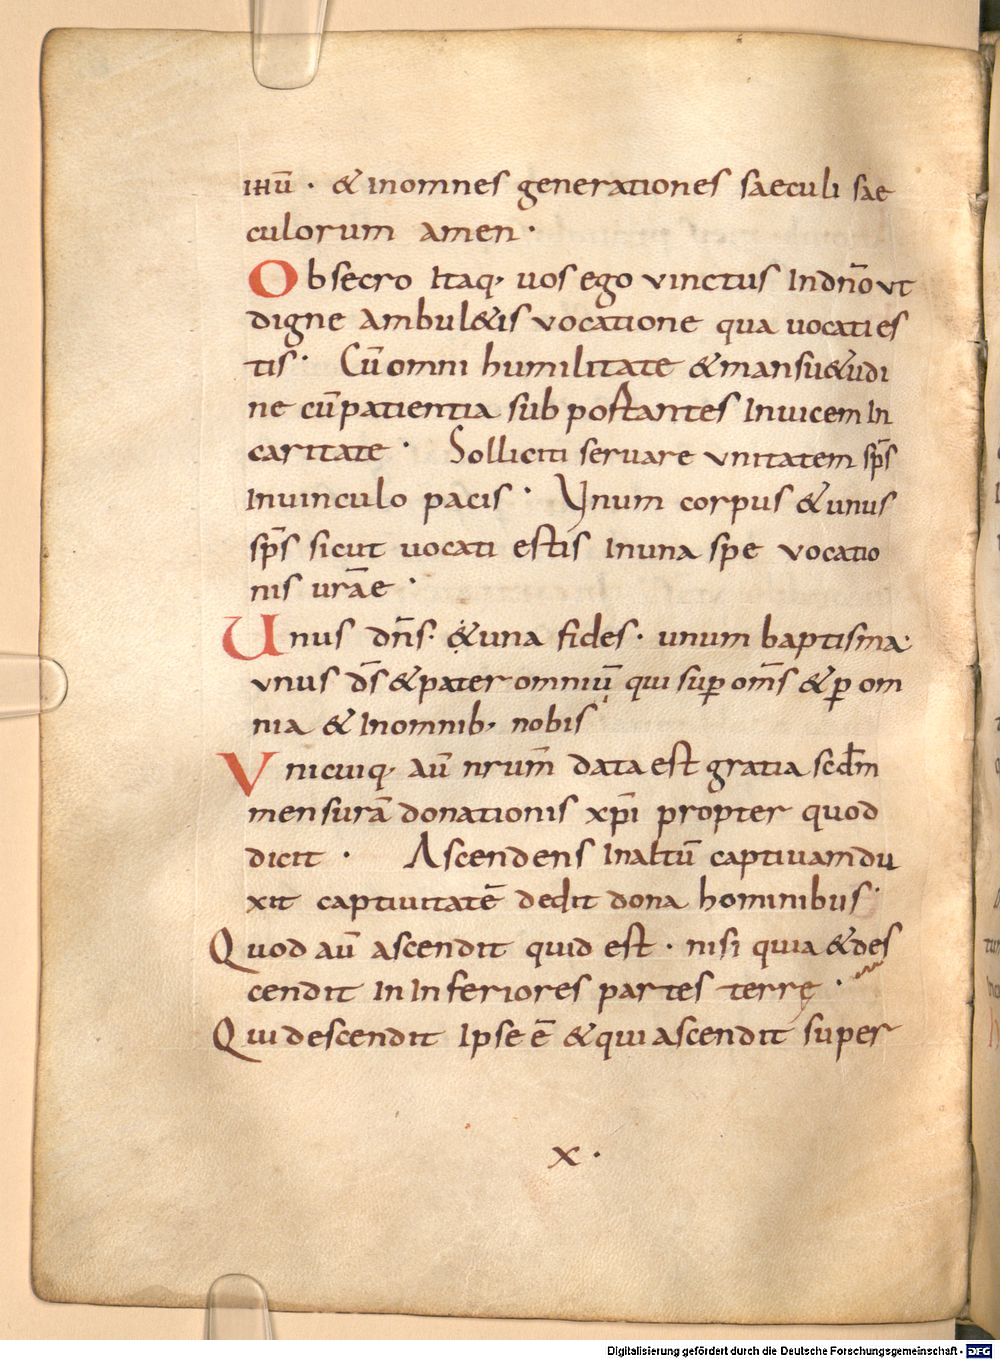 ihū · & inomnes generationes saeculi sae
culorum amen ·
Obsecro Itaq; uos ego vinctus Indn̄o vt
digne Ambul&is vocatione qua uocati es
tis · Cū omni humilitate &mansu&udi
ne cū patientia subportantes Inuicem In
caritate · Solliciti seruare vnitatem sp̄s
Inuinculo pacis · Vnum corpus &unus
sp̄s sicut uocati estis Inuna spe vocatio
nis ur̄ae ·
Unus dn̄s · &una fides · unum baptisma ·
vnus d̄s &pater omniū qui suꝑ om̄s &ꝑ om
nia & Inomnib; nobis
Vnicuiq; aū nr̄um̄ data est gratia scd̄m
mensurā donationis xp̄i propter quod
dicit · Ascendens Inaltū captiuam du
xit captiuitatē dedit dona hominibus ·
Quod aū ascendit quid est · nisi quia &des
cendit In Inferiores partes terrę ·
Qui descendit Ipse ē &qui ascendit super
x ·
Digitalisierung gefördert durch die Deutsche Forschungsgemeinschaft - DFG